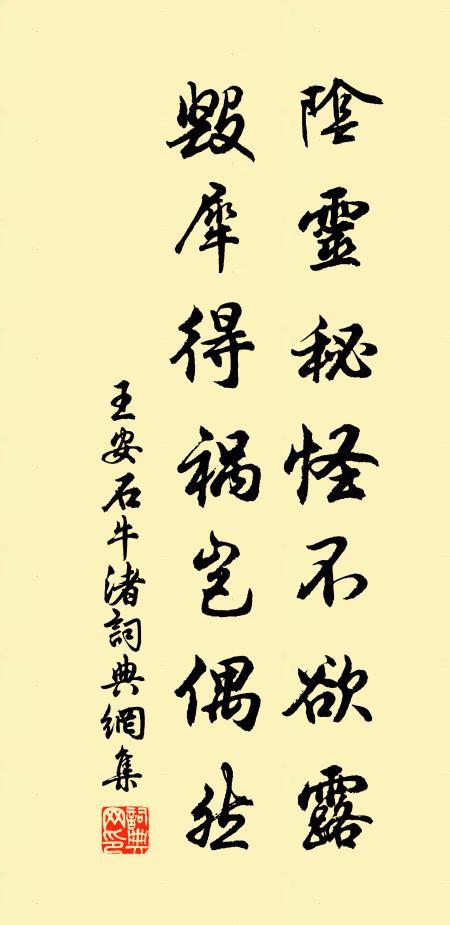 陰靈秘怪不欲露
毀犀得禍豈偶然
王安石牛渚詞典網集
詞典网印